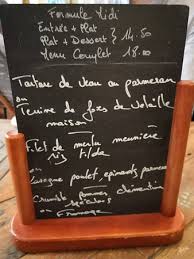 Formule Midi
Entrée + Plat
Plat + Dessert } 14.50
Menu Complet 18.00
Tartare de veau au parmesan
ou
Terrine de foies de Volaille
maison
Filet de merlu meunière
riz
ou
Lasagne poulet, épinards, parmesan
Crumble pommes clémentines
spéculoos
ou
Fromage